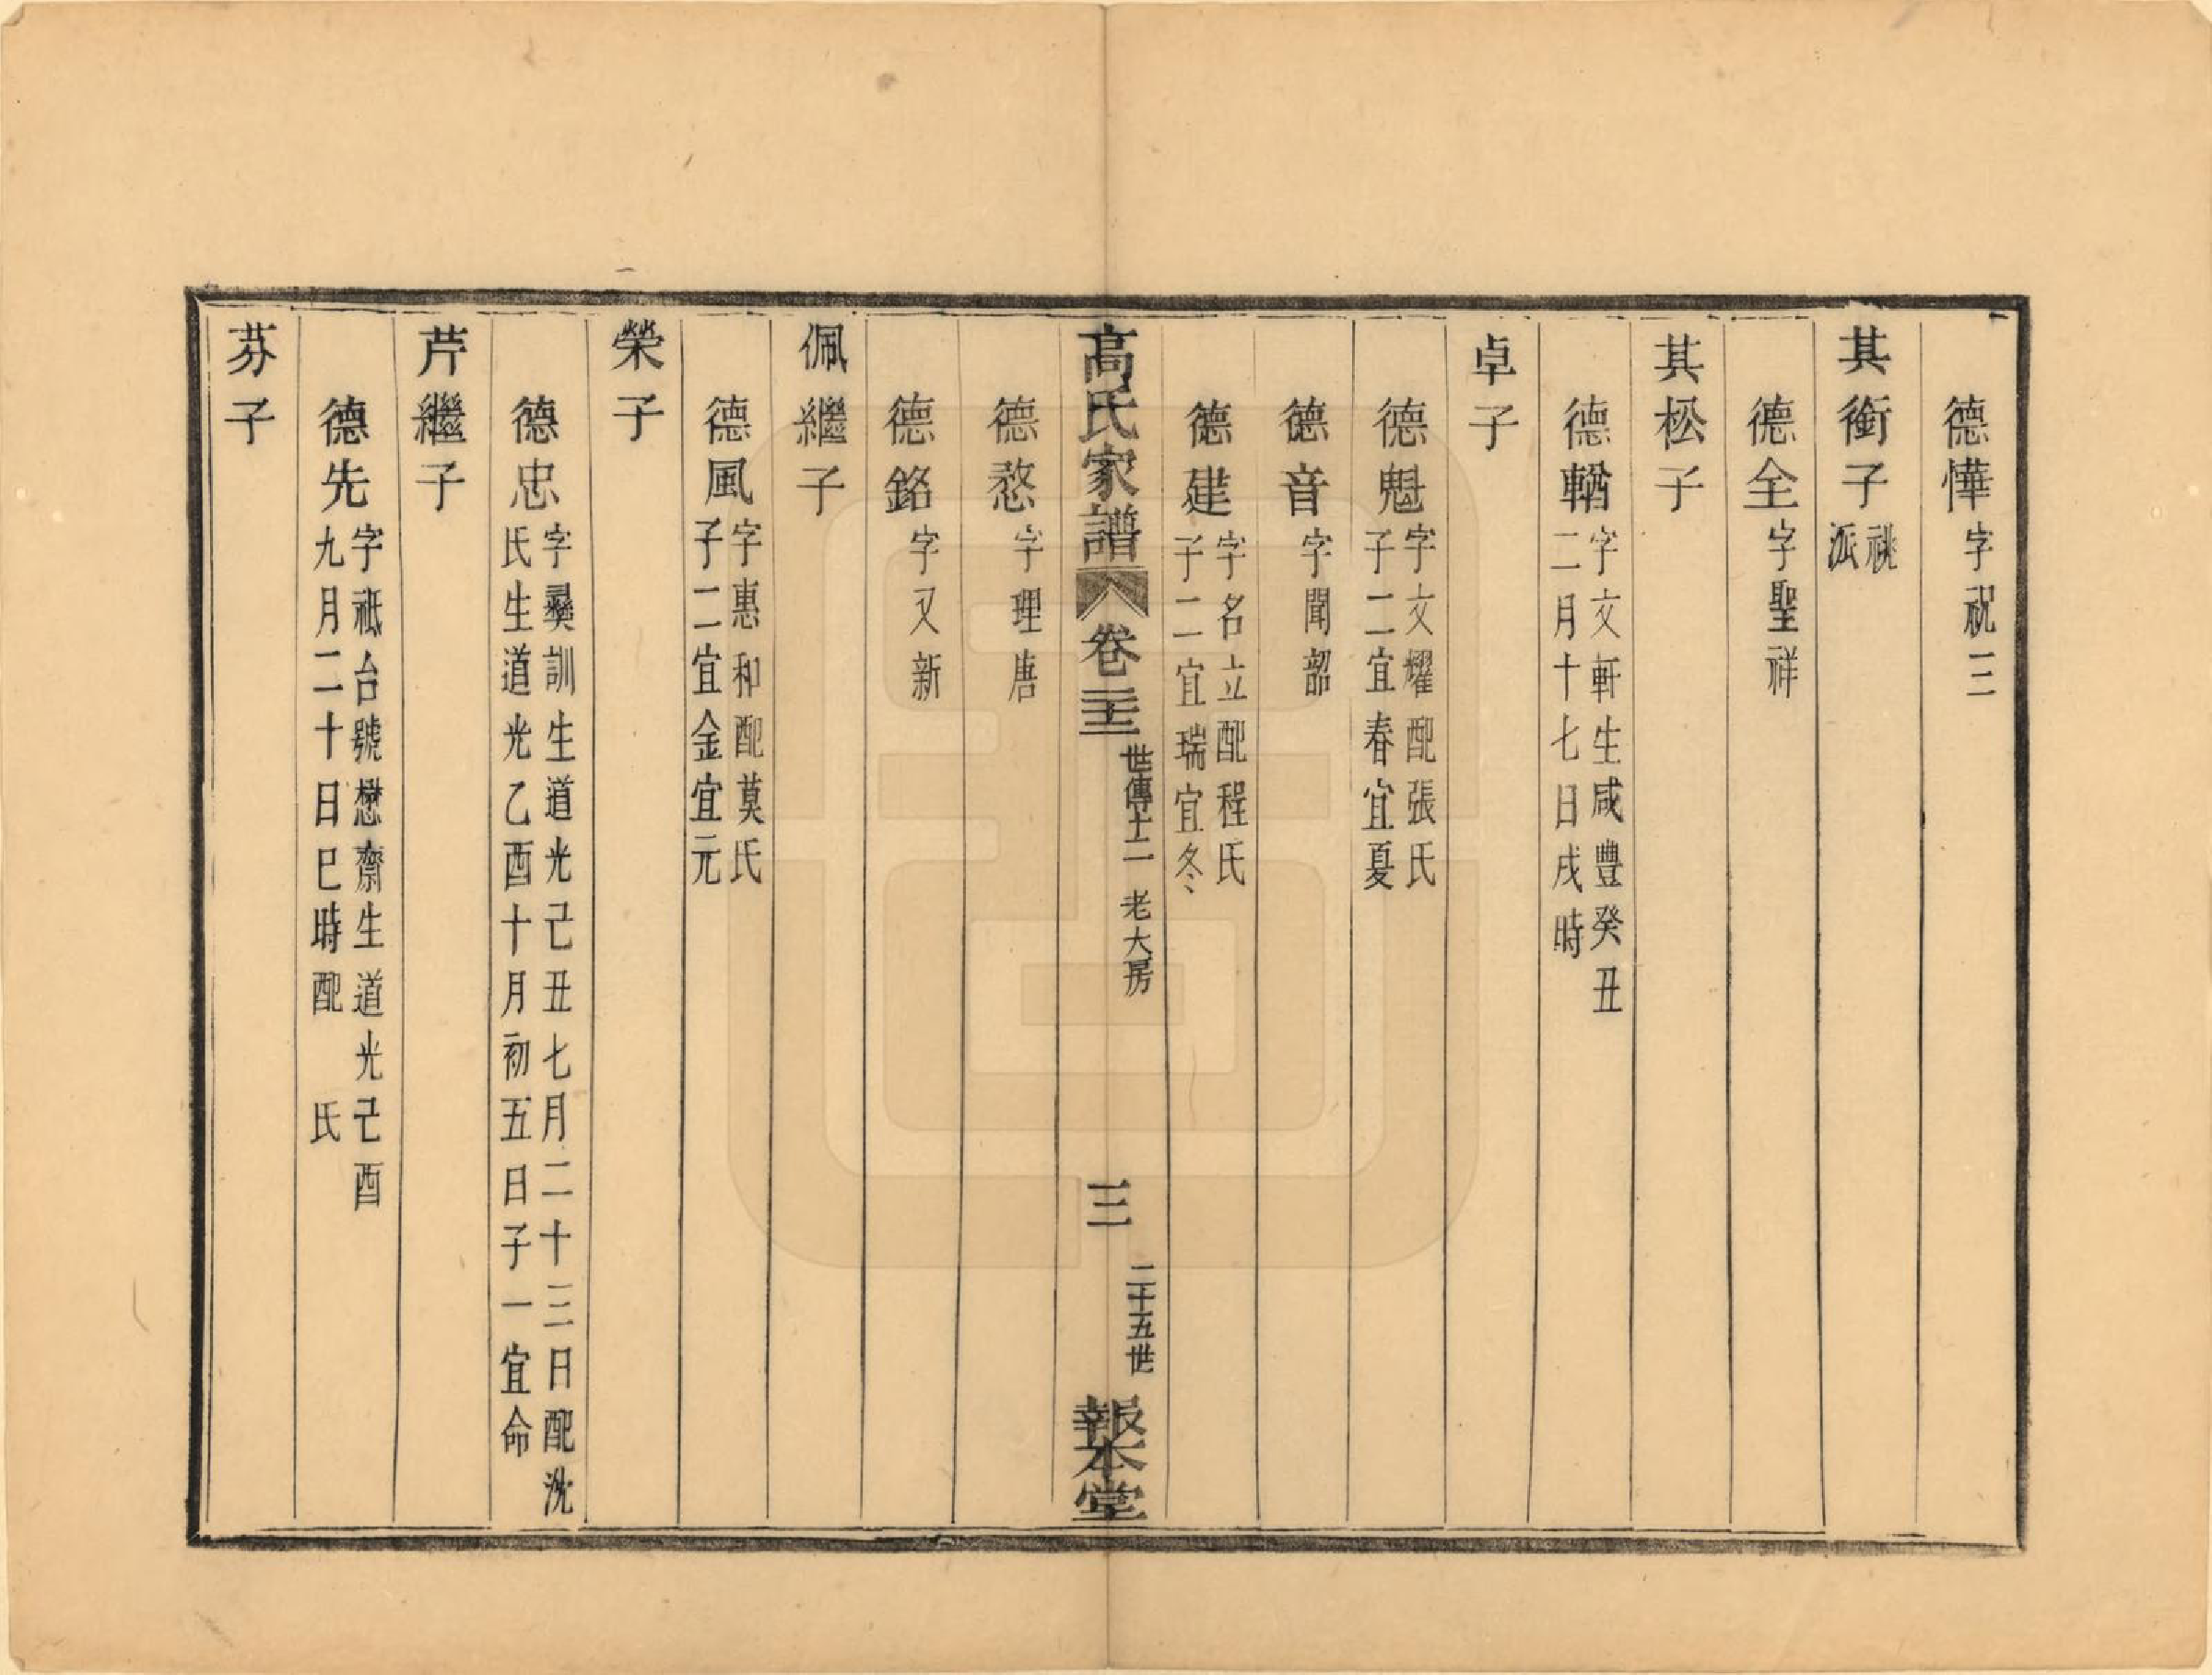 德㦊字祝三
其銜子祧派
德全字聖祥
其松子
德輶字文軒生咸豐癸丑
二月十七日戌時
卓子
德魁字文耀配張氏
子二宜春宜夏
德音字聞韶
德建字名立配程氏
子二宜瑞宜冬
高氏家譜 卷二十三 世傳十二 老大房 三 二十五世 報本堂
德愗字理唐
德銘字又新
佩繼子
德風字惠和配莫氏
子二宜金宜元
榮子
德忠字彝訓生道光己丑七月二十三日配沈
氏生道光乙酉十月初五日子一宜命
芹繼子
德先字祗台號懋齋生道光己酉
九月二十日巳時配 氏
芬子